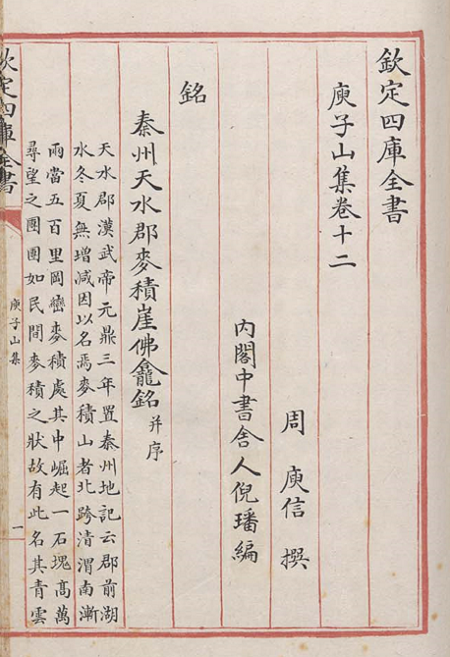 欽定四庫全書
庾子山集卷十二
周 庾信 撰
內閣中書舍人倪璠編
銘
秦州天水郡麥積崖佛龕銘 并序
天水郡漢武帝元鼎三年置秦州地記云郡前湖
水冬夏無增減因以名焉麥積山者北跨清渭南漸
兩當五百里岡巒麥積處其中崛起一石塊高萬
尋望之團團如民間麥積之狀故有此名其青雲
欽定四庫全書
庾子山集
一